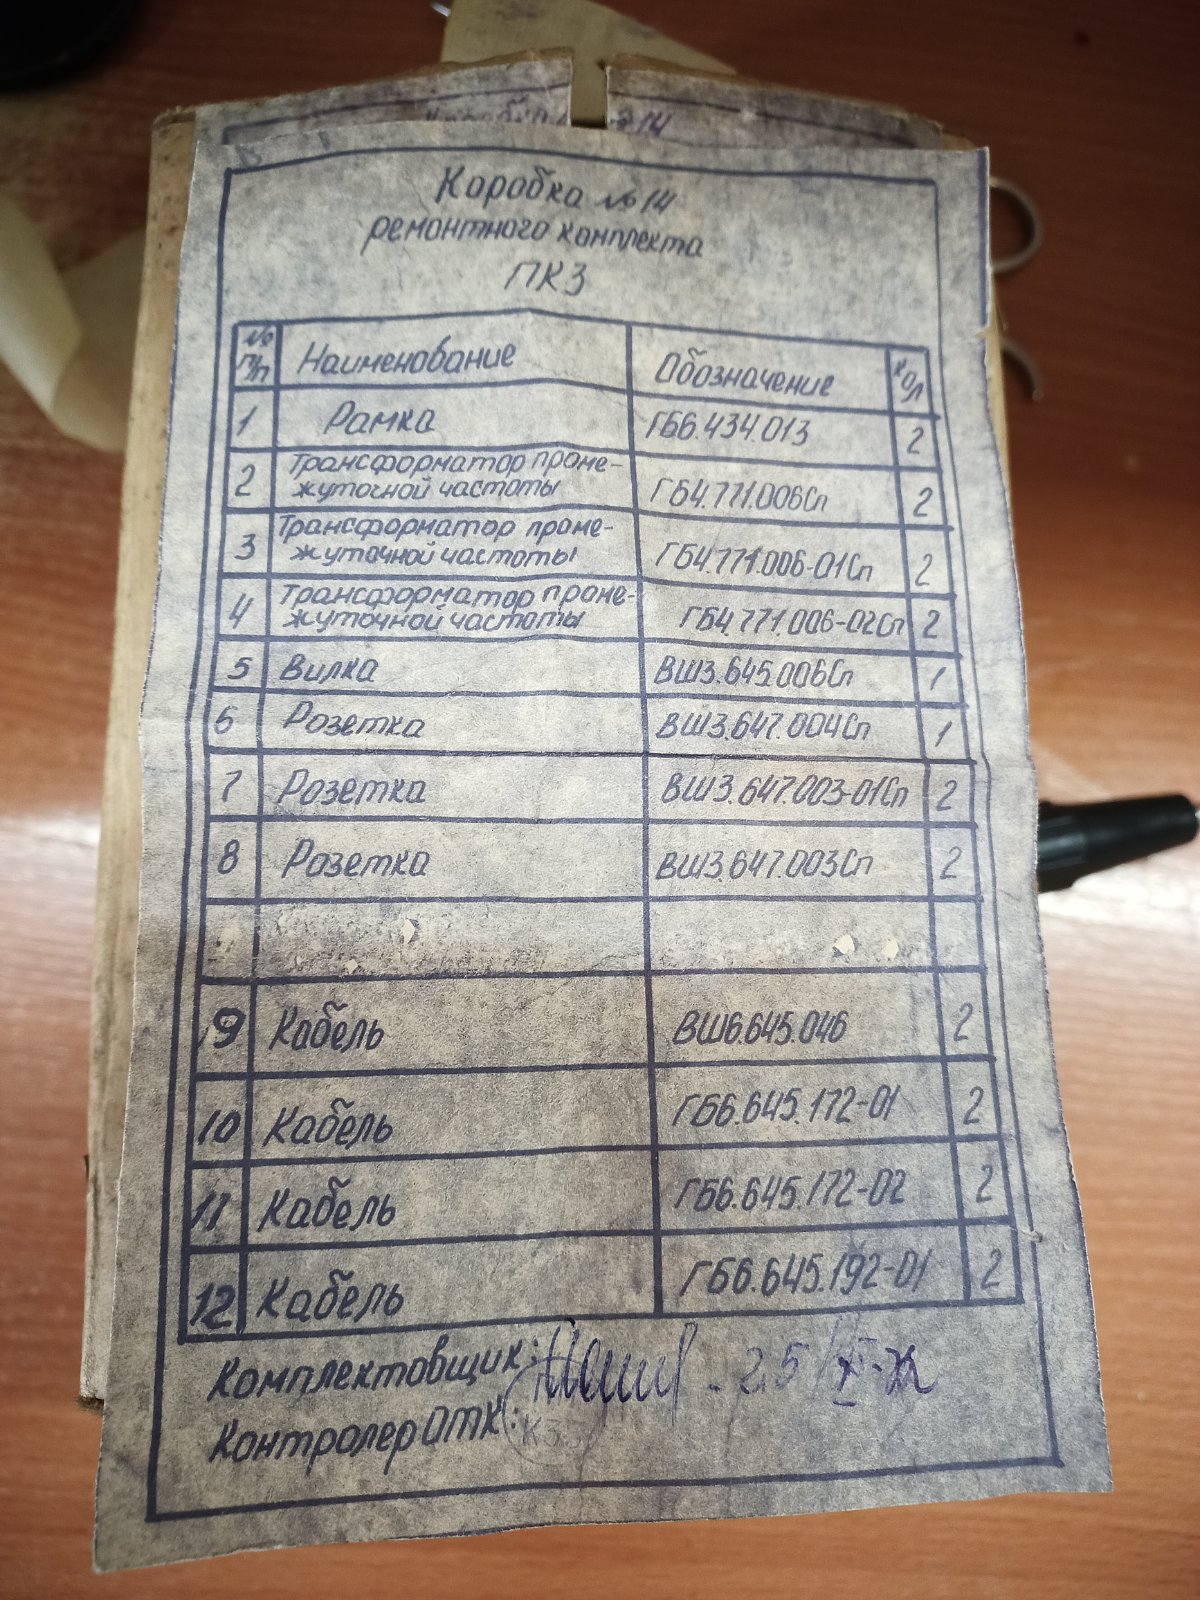 Коробка № 14
Коробка №14
ремонтного комплекта
ПКЗ
№ п/п Наименование Обозначение Кол
1 Рамка ГБ6.434.013 2
2 Трансформатор проме-
жуточной частоты ГБ4.771.006Сп 2
3 Трансформатор проме-
жуточной частоты ГБ4.771.006-01Сп 2
4 Трансформатор проме-
жуточной частоты ГБ4.771.006-02Сп 2
5 Вилка ВШ3.645.006Сп 1
6 Розетка ВШ3.647.004Сп 1
7 Розетка ВШ3.647.003-01Сп 2
8 Розетка ВШ3.647.003Сп 2
9 Кабель ВШ6.645.046 2
10 Кабель ГБ6.645.172-01 2
11 Кабель ГБ6.645.172-02 2
12 Кабель ГБ6.645.192-01 2
Комплектовщик:
Контролер ОТК:
К33